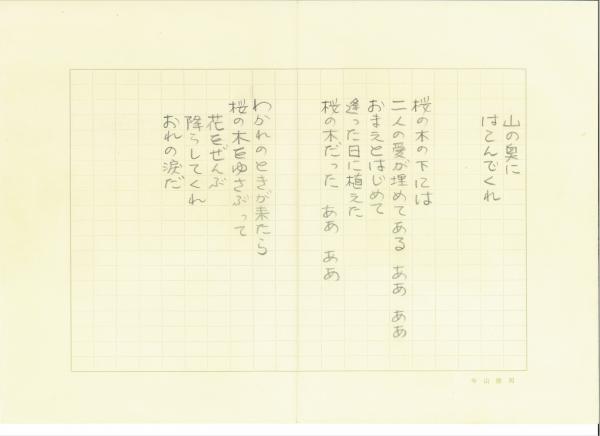 山の奥に
はこんでくれ
桜の木の下には
二人の愛が埋めてある　ああ　ああ
おまえとはじめて
逢った日に植えた
桜の木だった　ああ　ああ
わかれのときが来たら
桜の木をゆさぶって
花をぜんぶ
降らしてくれ
おれの涙だ
寺山修司